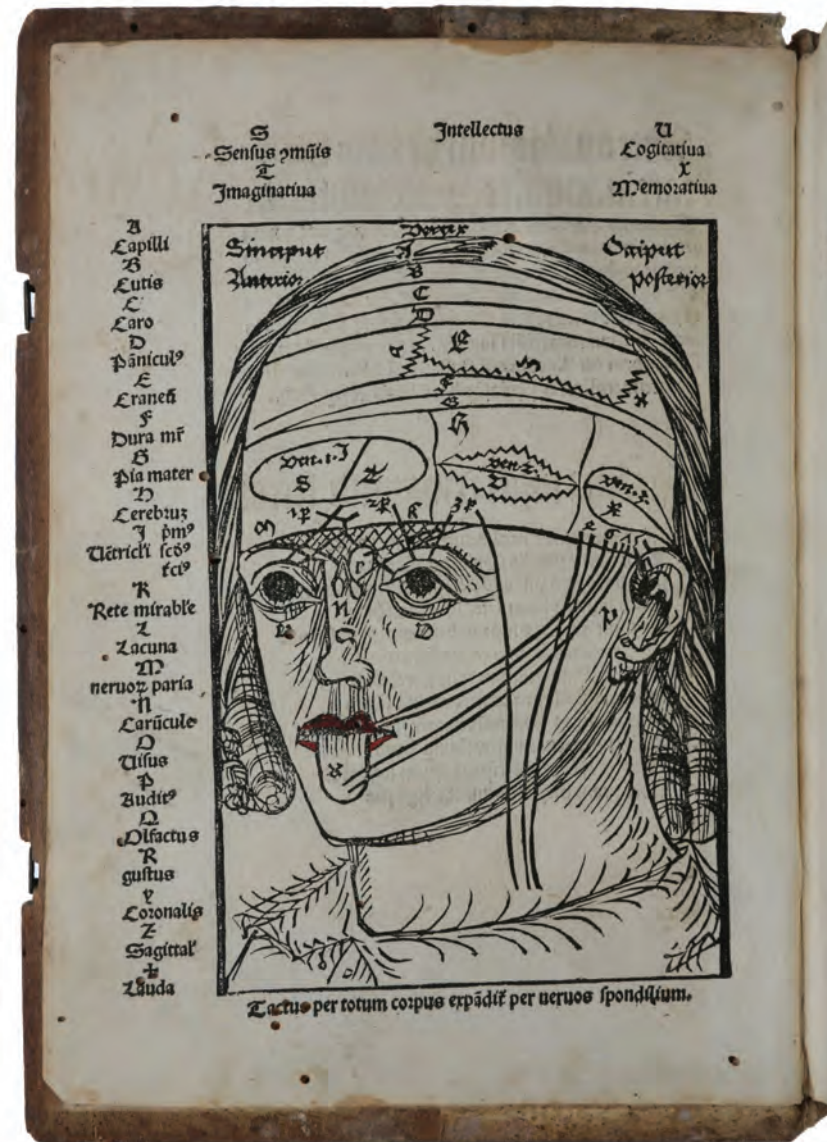 S
Sensus ꝯmũis
T
Imaginatiua
Intellectus
U
Cogitatiua
X
Memoratiua
A
Capilli
B
Cutis
C
Caro
D
Pãniculꝰ
E
Craneũ
F
Dura mr̃
G
Pia mater
H
Cerebruꝫ
I p̃mꝰ
Uẽtricl'i scd̕ꝰ
t̃ciꝰ
K
Rete mirabl'e
L
Lacuna
M
neruoꝝ paria
N
Carũcule
O
Uisus
P
Auditꝰ
Q
Olfactus
R
gustus
Y
Coronalis
Z
Sagittal'
Lauda
Vertex
Sinciput
Anterior
Occiput
Posterior
A
B
C
D
E
H
ven. 1. I
S
ven. 2.
ven. 3.
Tactus per totum corpus expãdit̃ per neruos spondilium.